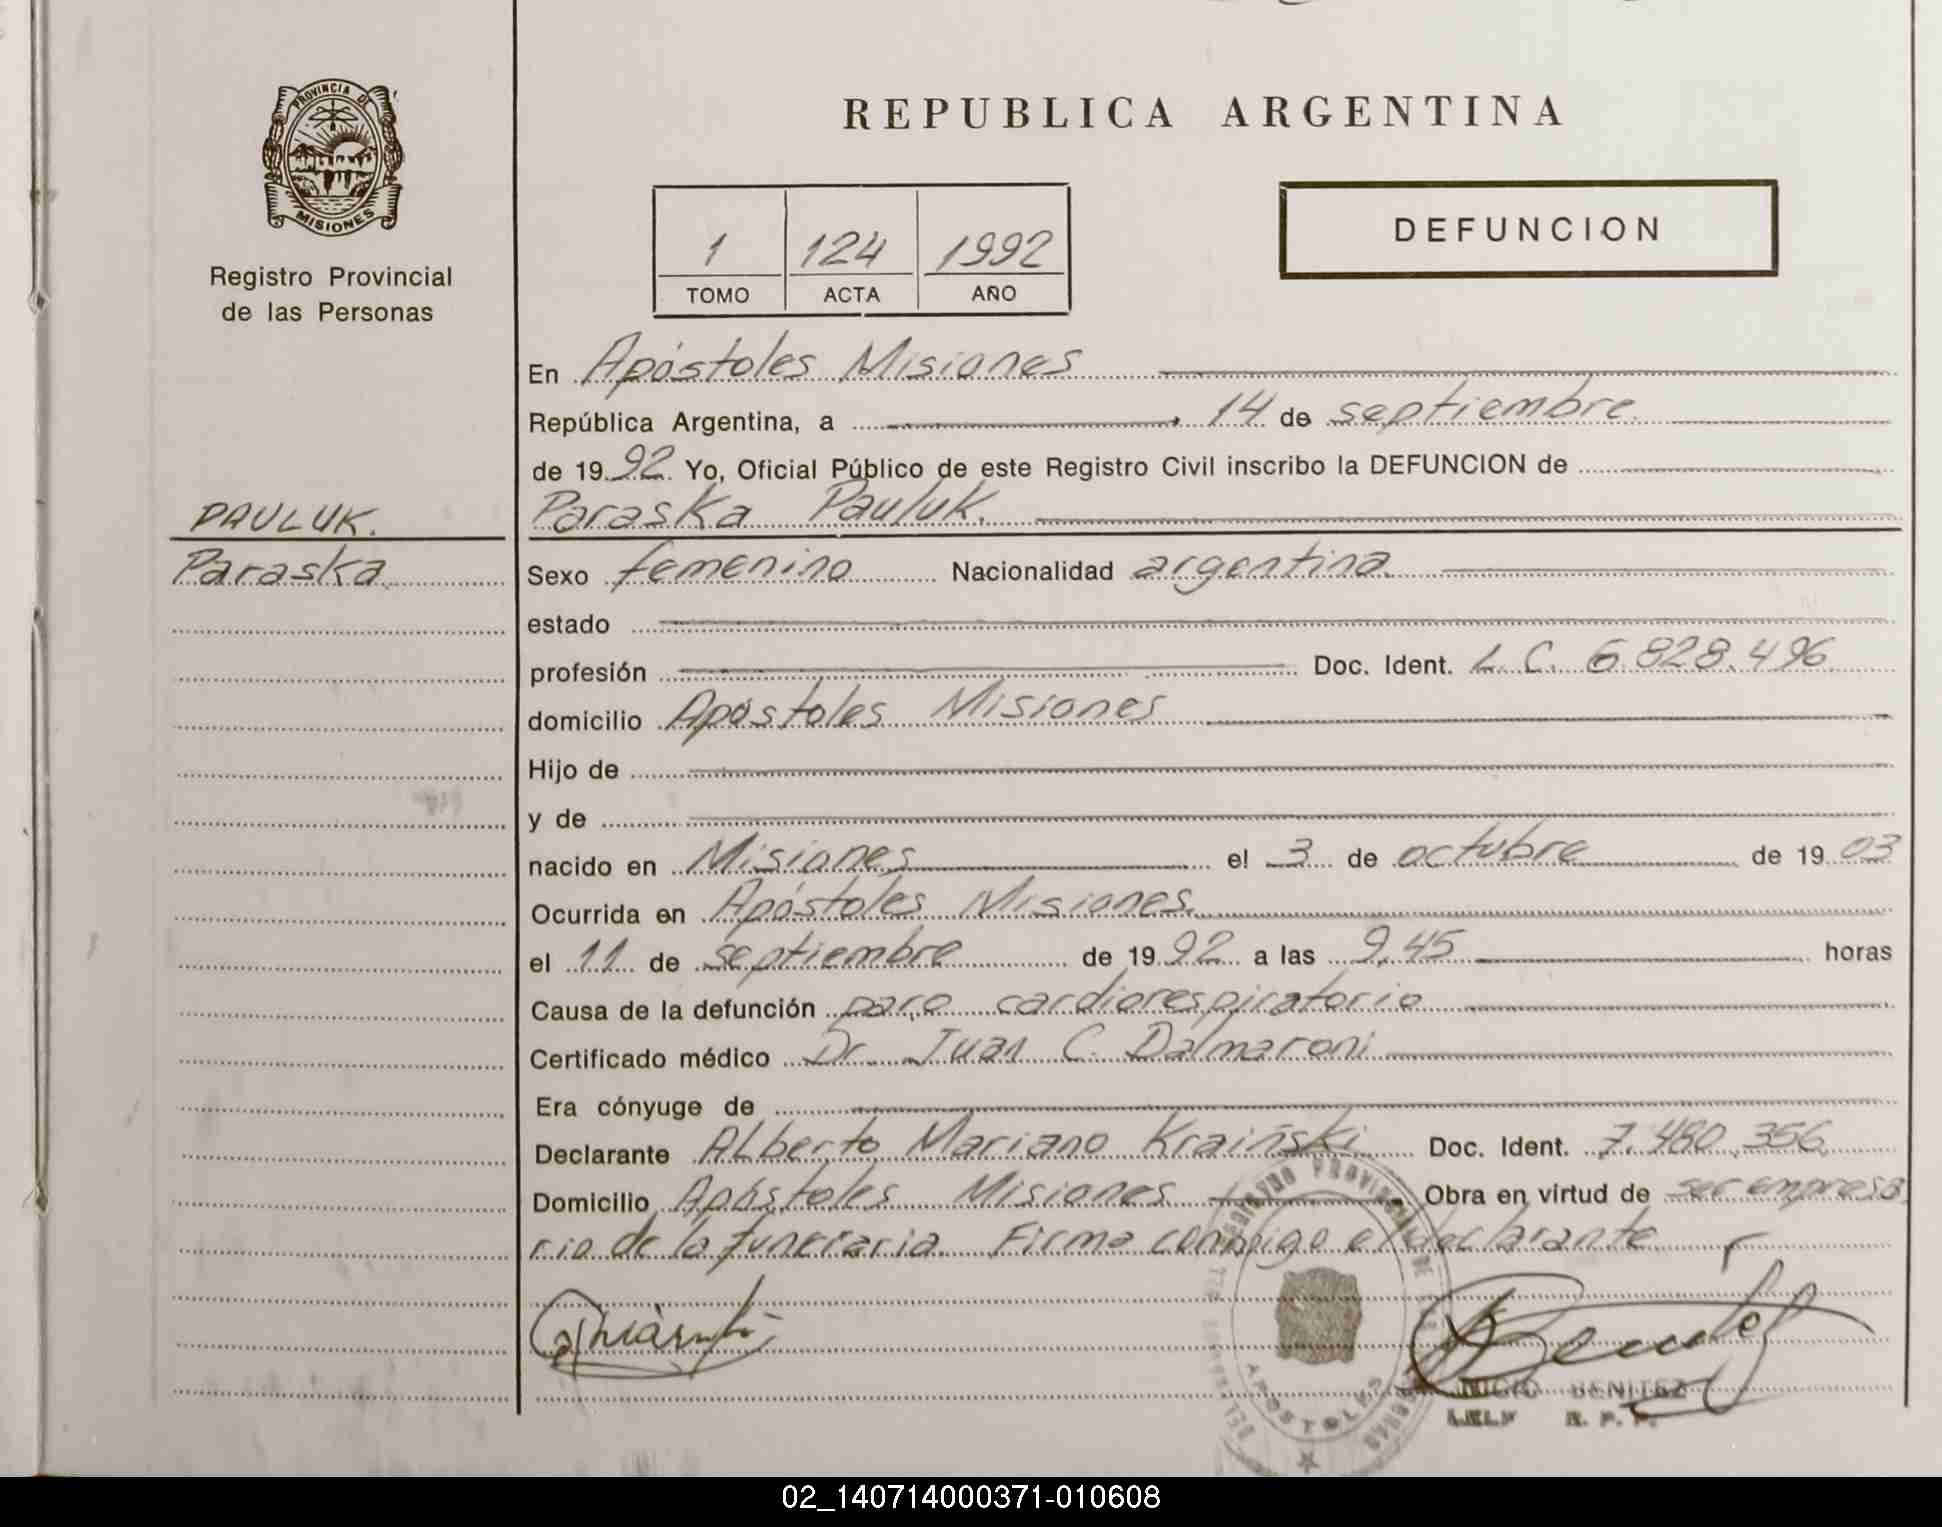 PROVINCIA DE
MISIONES
Registro Provincial
de las Personas
REPUBLICA ARGENTINA
1 124 1992
TOMO ACTA AÑO
DEFUNCION
En Apóstoles Misiones
República Argentina, a 14 de septiembre
de 1992. Yo, Oficial Público de este Registro Civil inscribo la DEFUNCION de
PAULUK.
Paraska
Paraska Pauluk.
Sexo femenino Nacionalidad argentina
estado
profesión Doc. Ident. L. C. 6.828.496
domicilio Apóstoles Misiones
Hijo de
y de
nacido en Misiones el 3 de octubre de 1903
Ocurrida en Apóstoles Misiones.
el 11 de septiembre de 1992 a las 9,45 horas
Causa de la defunción paro cardiorespiratorio
Certificado médico Dr. Juan C. Dalmaroni
Era cónyuge de
Declarante Alberto Mariano Kraiñski Doc. Ident. 7.480.356
Domicilio Apóstoles Misiones Obra en virtud de ser empresa
rio de la funeraria. Firma conmigo el declarante
APOSTOLES
BENITEZ
02_140714000371-010608